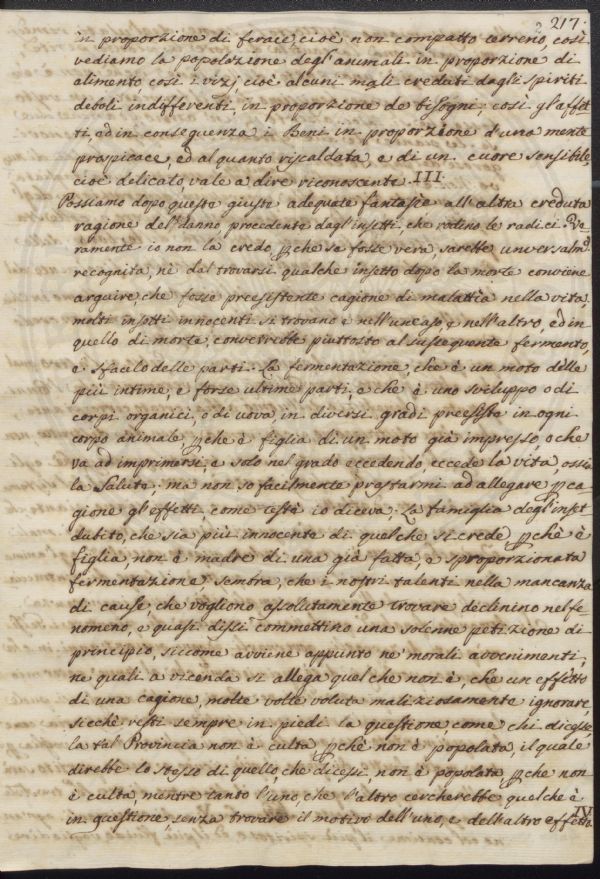 217.
in proporzione di ferace, cioè non compatto terreno, così
vediamo la popolazione degl'animali in proporzione di
alimento così i vizj, cioè alcuni mali creduti dagli spiriti
deboli indifferenti, in proporzione de bisogni; così gl'affet-
ti, ed in conseguenza i Beni in proporzione d'una mente
praspicace, ed alquanto riscaldata, e di un cuore sensibile,
cioè delicato, vale a dire riconoscente. III.
Possiamo dopo queste giuste adequate fantasie all'altra creduta
ragione del danno, procedente dagl'insetti, che rodino le radici. Ve-
ramente io non la credo, pche se fosse vera, sarebbe unversalme
recognita, nè dal trovarsi qualche insetto dopo la morte conviene
arguire, che fosse preesistente cagione di malattia nella vita;
molti insetti innocenti si trovano e nell'un caso, e nell'altro, ed in
quello di morte, converrebbe piuttosto al susseguente fermento,
e sfacelo delle parti. La fermentazione, che è un moto delle
più intime, e forse ultime parti, e che è uno sviluppo o di
corpi organici, o di uova, in diversi gradi preesiste in ogni
corpo animale, pche è figlia di un moto già impresso, o che
va ad imprimersi, e solo nel grado eccedendo, eccede la vita, ossia
la salute; ma non so facilmente prestarmi ad allegare p ca-
gione gl'effetti, come testè io diceva. La famiglia degl'inset
dubito, che sia più innocente di quel che si crede, pchè è
figlia, non è madre di una già fatta, e sproporzionata
fermentazione. Sembra, che i nostri talenti nella mancanza
di cause, che vogliono assolutamente trovare declinino nel fe-
nomeno, e quasi dissi commettino una solenne petizione di
principio, siccome avviene appunto ne' morali avvenimenti,
ne quali a vicenda si allega quel che non è, che un effetto
di una cagione, molte volte voluta maliziosamente ignorare,
sicchè resti sempre in piedi la questione, come chi dicesse,
la tal Provincia non è culta, pchè non è popolata, il quale
direbbe lo stesso di quello, che dicesi, non è popolata, pche non
è culta, mentre tanto l'uno, che l'altro cercherebbe quel che è
in questione, senza trovare il motivo dell'uno, e dell'altro effetto.
IV